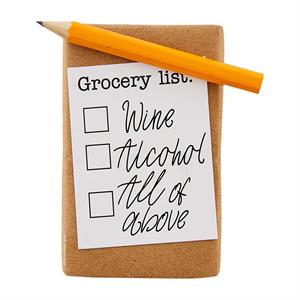 Grocery list:
Wine
Alcohol
All of
above